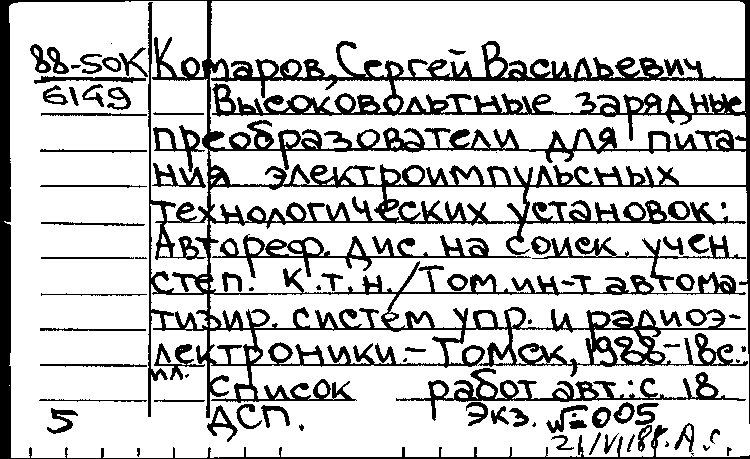 88-50К Комаров, Сергей Васильевич
6149 Высоковольтные зарядные
преобразователи для пита-
ния электроимпульсных
технологических установок:
Автореф. дис. на соиск. учен.
степ. к.т.н./Том.ин-т автома-
тизир. систем упр. и радиоэ-
лектроники.-Томск, 1988.-18с.:
ил.
Список работ авт.: с. 18.
5 ДСП. Экз. №=005
21/VI188. А.С.